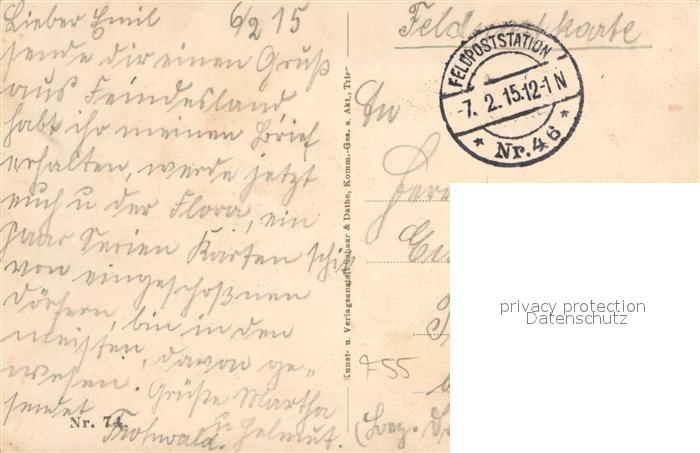 Lieber Emil 6/2 15
sende dir einen Gruß
aus Feindesland
habt ihr meinen Brief
erhalten, werde jetzt
euch u der Flora, ein
paar Serien Karten schik
von eingeschoßnen
Dörfern, bin in den
meisten, davon ge„
wesen. Grüße Martha
sendet u Helmut.
Nr. 74.
Kunst- u. Verlagsanstalt Schaar & Dathe, Komm.-Ges. a. Akt., Trier
Feldpostkarte
FELDPOSTSTATION
-7. 2. 15. 12-1 N
* Nr. 46 *
An
755
privacy protection
Datenschutz